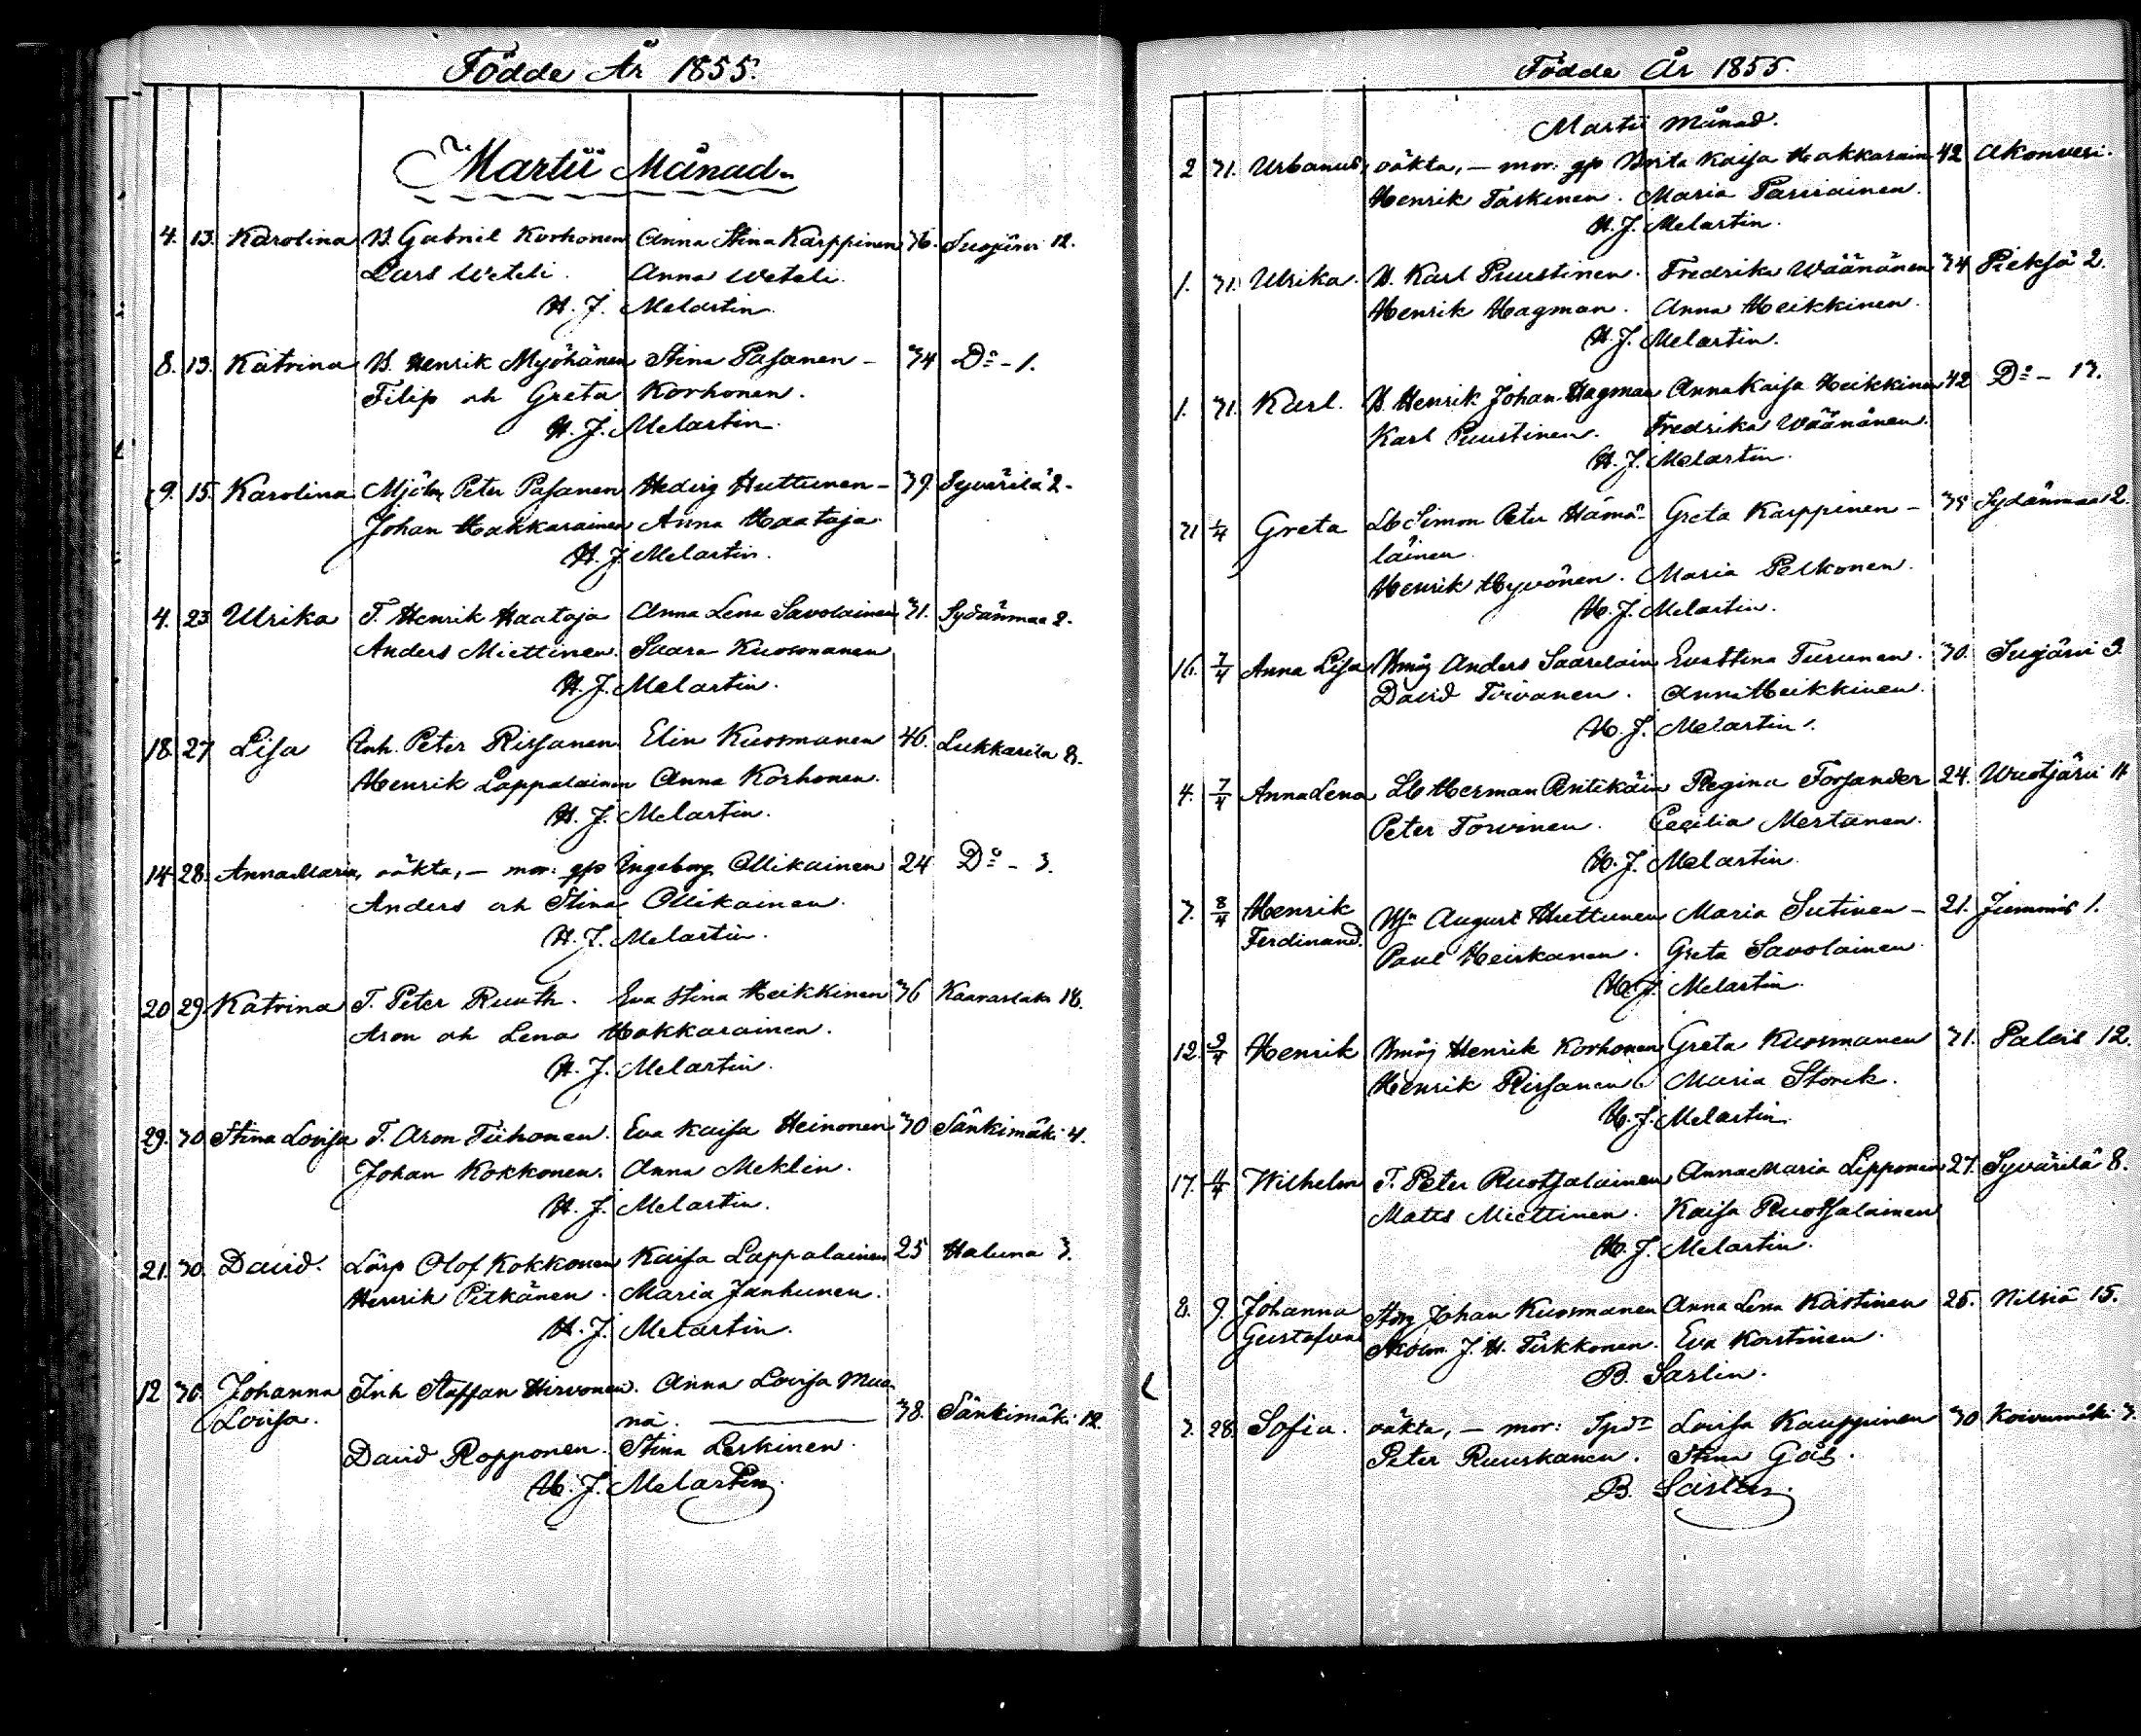 Födde År 1855.
Martii Månad
4. 13. Karolina B. Gabriel Korhonen Anna Stina Karppinen 36. Suojärvi 12.
Lars Weteli. Anna Weteli.
H. J. Melartin.
8. 13. Katrina B. Henrik Myöhänen Stina Pasanen - 34 Do - 1.
Filip och Greta Korhonen.
H. J. Melartin.
9. 15. Karolina Mjöln Peter Pasanen Hedvig Huttunen - 39. Syvärilä 2.
Johan Hakkarainen Anna Haataja
H. J. Melartin.
4. 23 Ulrika T. Henrik Haataja Anna Lena Savolainen 31. Sydänmaa 2.
Anders Miettinen. Saara Kuosmanen
H. J. Melartin.
18. 27 Lisa Inh. Peter Rissanen Elin Kuosmanen 46. Lukkarila 8.
Henrik Lappalainen Anna Korhonen.
H. J. Melartin.
14 28. Anna Maria, oäkta, - mor: gp Ingeborg Ollikainen 24 Do - 3.
Anders och Stina Ollikainen.
H. J. Melartin.
20 29 Katrina T. Peter Ruuth. Eva Stina Heikkinen 36 Kaavaslaks 18.
Aron och Lena Hakkarainen.
H. J. Melartin.
29. 30 Stina Lovisa T. Aron Tiihonen. Eva Kaisa Heinonen 30 Sänkimäki 4.
Johan Kokkonen. Anna Meklin.
H. J. Melartin.
21. 30. David. Lösp Olof Kokkonen Kaisa Lappalainen 25 Haluna 3.
Henrik Pitkänen. Maria Janhunen.
H. J. Melartin.
12 30. Johanna Inh Staffan Hirvonen. Anna Lovisa
Lovisa. 38. Sänkimäki 12.
David Ropponen. Stina Leskinen.
H. J. Melartin.
Födde År 1855.
Martii Månad.
2 31. Urbanus, oäkta, - mor: gp Brita Kaisa Hakkarain 42 Akonvesi.
Henrik Taskinen. Maria Parviainen.
H. J. Melartin.
1. 31. Ulrika. B. Karl Puustinen. Fredrika Wäänänen 34 Pieksä 2.
Henrik Hagman. Anna Heikkinen.
H. J. Melartin.
1. 31. Karl. B. Henrik Johan Hagman Anna Kaisa Heikkinen 42 Do - 13.
Karl Puustinen. Fredrika Wäänänen.
H. J. Melartin.
31 1/4 Greta Lb Simon Peter Hämä- Greta Karppinen - 35 Sydänmaa 2.
läinen
Henrik Hyvönen. Maria Pelkonen.
H. J. Melartin.
16. 7/4 Anna Lisa Bmåg Anders Saarelain Eva Stina Turunen. 30. Sujärvi 3.
David Tirvanen. Anna Heikkinen.
H. J. Melartin.
4. 7/4 Anna Lena Lb Herman Pentikäin Regina Forsander 24. Wuotjärvi 11
Peter Torvinen. Cecilia Mertanen.
H. J. Melartin.
7. 8/4 Henrik August Huttunen Maria Sutinen - 21. Juminis 1.
Ferdinand.
Paul Heiskanen. Greta Savolainen
H. J. Melartin.
12. 9/4 Henrik Bmåg Henrik Korhonen Greta Kuosmanen 31. Palois 12.
Henrik Rissanen. Maria Storck.
H. J. Melartin
17. 11/4 Wilhelm T. Peter Ruotsalainen Anna Maria Lipponen 27. Syvärilä 8.
Matts Miettinen. Kaisa Ruotsalainen
H. J. Melartin.
8. 9. Johanna Johan Kuosmanen Anna Lena Kastinen 25. Nilsiä 15.
Gustafva
J. H. Tirkkonen. Eva Kastinen.
B. Sarlin.
7. 28. Sofia. oäkta, - mor: Lovisa Kauppinen 30 Koivumäki 3.
Peter Ruuskanen. Stina Gås.
B. Sarlin.